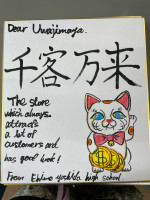 Dear Uwajimaya.
千客万来
The store
which always
attracts
a lot of
customers and
has good luck!
From Ehime
high school